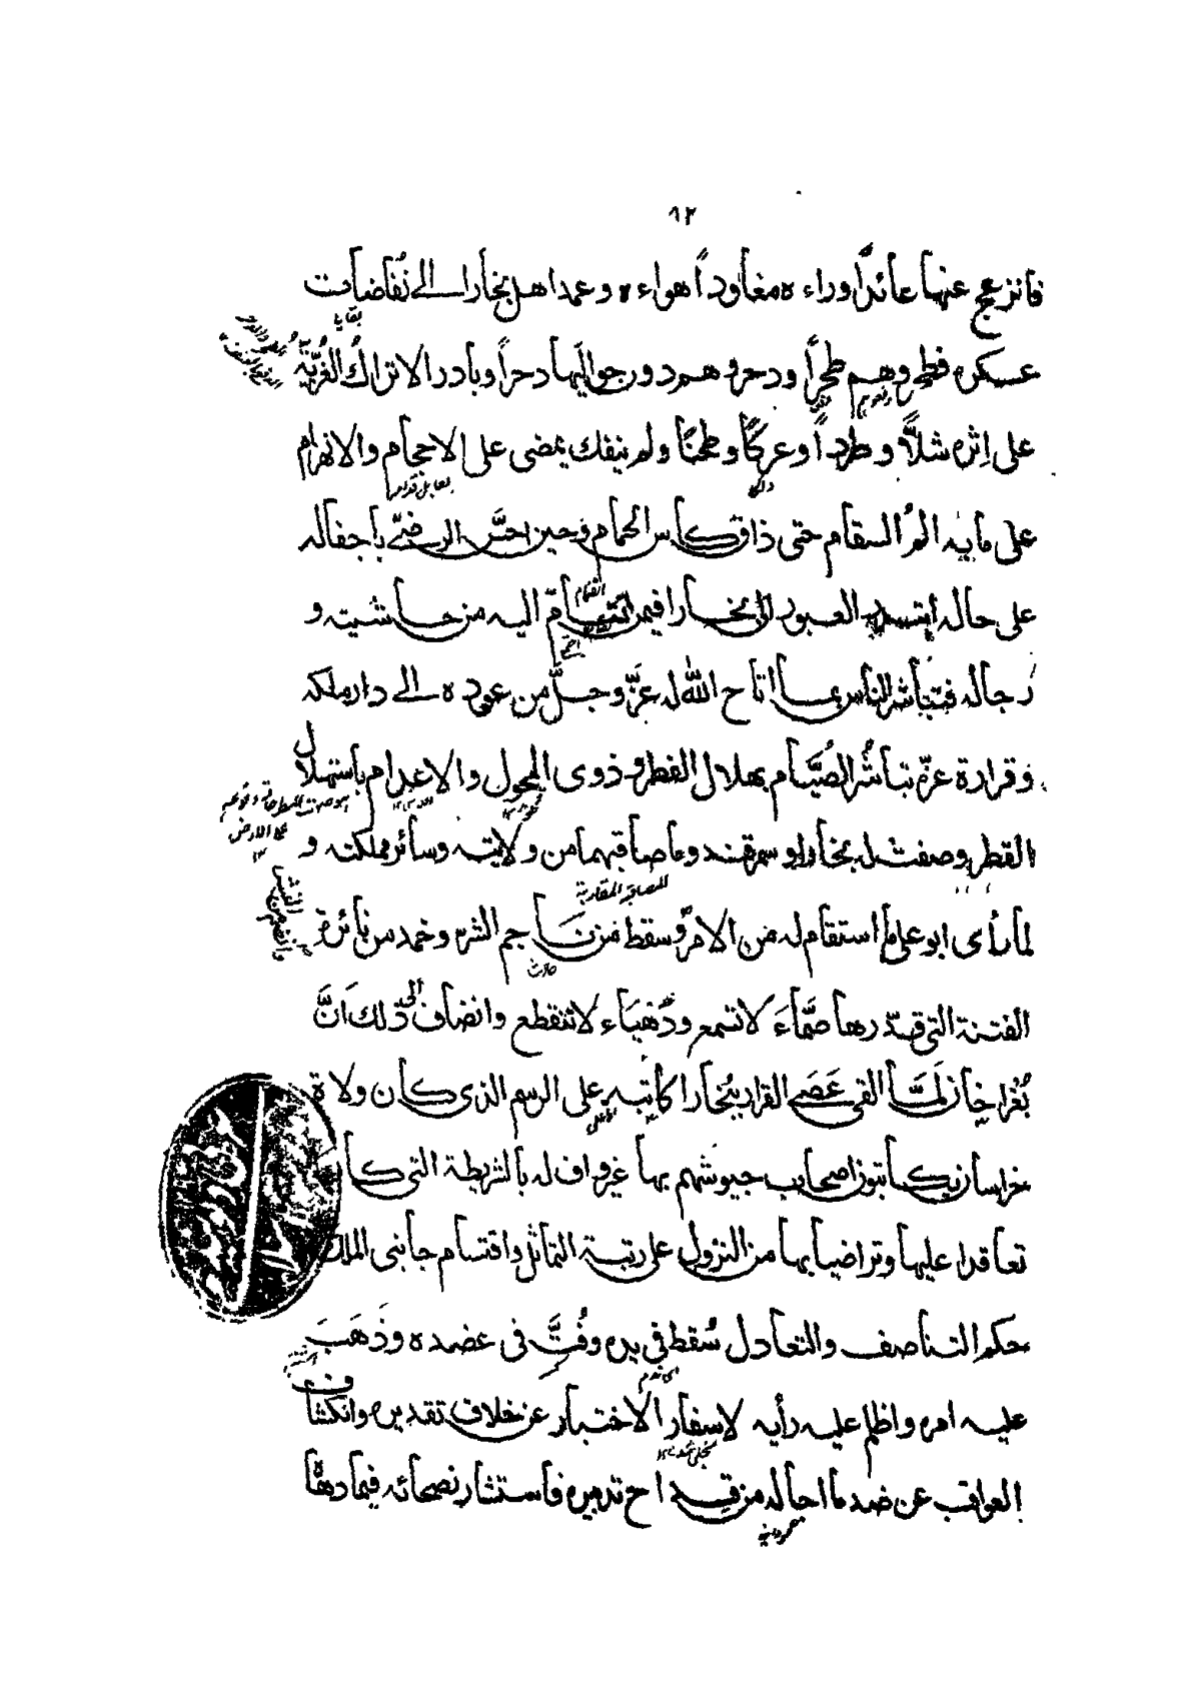 ٨٢
فانزعج عنها عائدًا وراءه معاودًا هواءه وعمد اهل بخارا الى نُفاضات
بقايا
عسكره فطحروهم طحرًا ودحروهم دورجوا اليها دحرًا وبادر الاتراك الغُزّيّة
على اِثره شلًّا وطردًا وعركًا وطحنًا ولم ينفك يمضى على الاحجام والانهزام
على ما به الم السقام حتى ذاق كاس الحمام وحين احسَّ الرضيّ باجفاله
على حاله العبور الى بخارا فيمن انضمّ اليه من حاشيته و
رجاله فتباشر الناس بما اتاح الله له عزّ وجلّ من عوده الى دار ملكه
وقرارة عزّه تباشُر الصُيَّام بهلال الفطر وذوى المحول والاعدام باستهلال
القطر وصفت له بخارا وسمرقند وما صاقبهما من ولايته وسائر مملكته و
المصاقبة المقاربة
لما رأى ابو على ما استقام له من الامر وسقط من ناجم الشرّ وخمد من نائرة
حادث
الفتنة التى قدّرها صمَّاءَ لا تسمع ودُهْيَاء لا تنقطع وانضاف الى ذلك اَنَّ
بُغْراخان لَمَّا القى عَصَى القرار ببُخارا كاتبه على الرسم الذى كان ولاة
خراسان يكاتبون اصحاب جيوشهم بها غير واف له بالشريطة التى كانا
تعاقدا عليها وتراضيا بها من النزول على رتبة التماثل واقتسام جانبى الملك
بحكم التناصف والتعادل سُقط فى يده وفُتَّ فى عضده وذَهَبَ
اى ندم
عليه امره واظلم عليه رأيه لاسفار الاختبار عن خلاف تقديره وانكشاف
العواقب عن ضد ما احاله من قداح تدبيره فاستشار نصحائه فيما دهاه